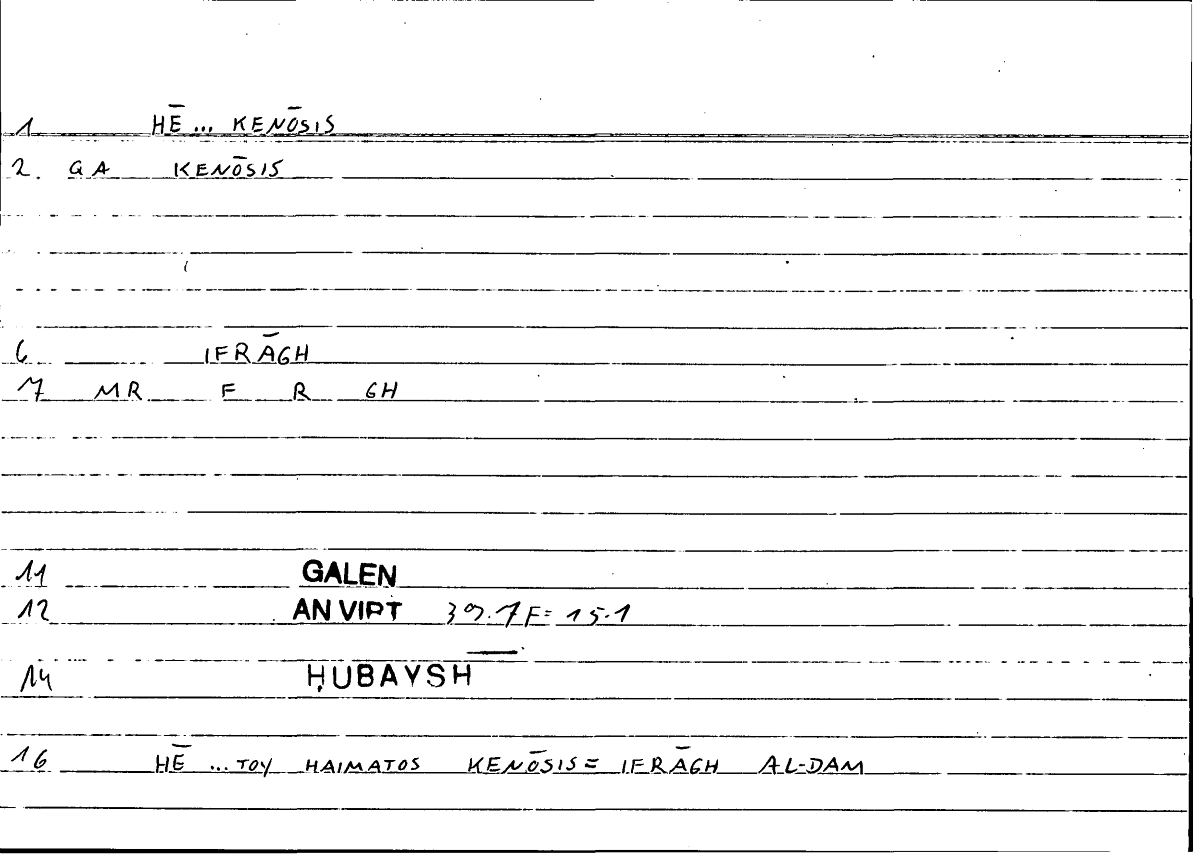 1 HĒ ... KENŌSIS
2. GA KENŌSIS
6 IFRĀGH
7 MR F R GH
11 GALEN
12 AN VIRT 39.7F= 15.1
14 ḤUBAYSH
16 HĒ ... TOY HAIMATOS KENŌSIS = IFRĀGH AL-DAM